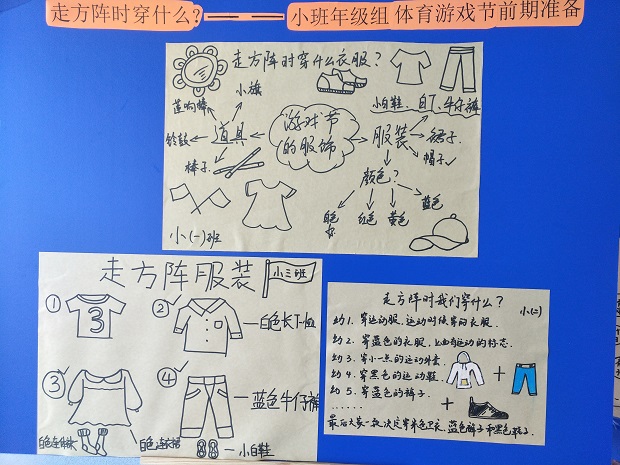 走方阵时穿什么?——小班年级组 体育游戏节前期准备
走方阵时穿什么衣服?
小旗
莲响棒
铃鼓
道具
棒子
游戏节
的服饰
小白鞋、白T、牛仔裤
服装
裙子
帽子✓
颜色?
白色
红色
黄色
蓝色
小(一)班
走方阵服装
小三班
① 3
②✓
白色长T恤
③✓
④✓
蓝色牛仔裤
白色连体袜
白色连衣裙
小白鞋
走方阵时我们穿什么?
小(二)
幼1. 穿运动服,运动时候穿的衣服.
幼2. 穿蓝色的衣服,上面有运动的标志.
幼3. 穿小一点的运动外套.
幼4. 穿黑色的运动鞋.
幼5. 穿蓝色的裤子.
......
最后大家一致决定穿米色卫衣、蓝色裤子和黑色鞋子.